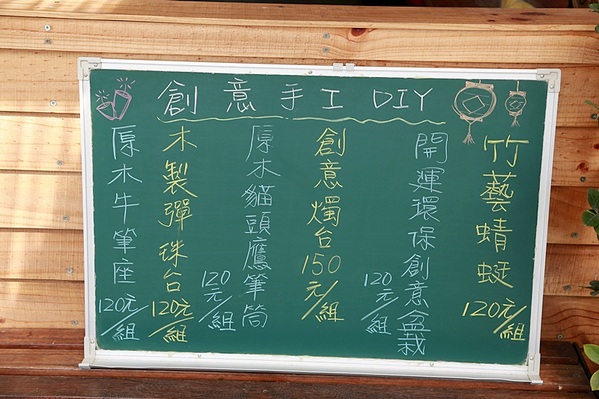 創意手工DIY
竹藝蜻蜓120元/組
開運環保創意盆栽120元/組
創意燭台150元/組
原木貓頭鷹筆筒120元/組
木製彈珠台120元/組
原木牛筆座120元/組